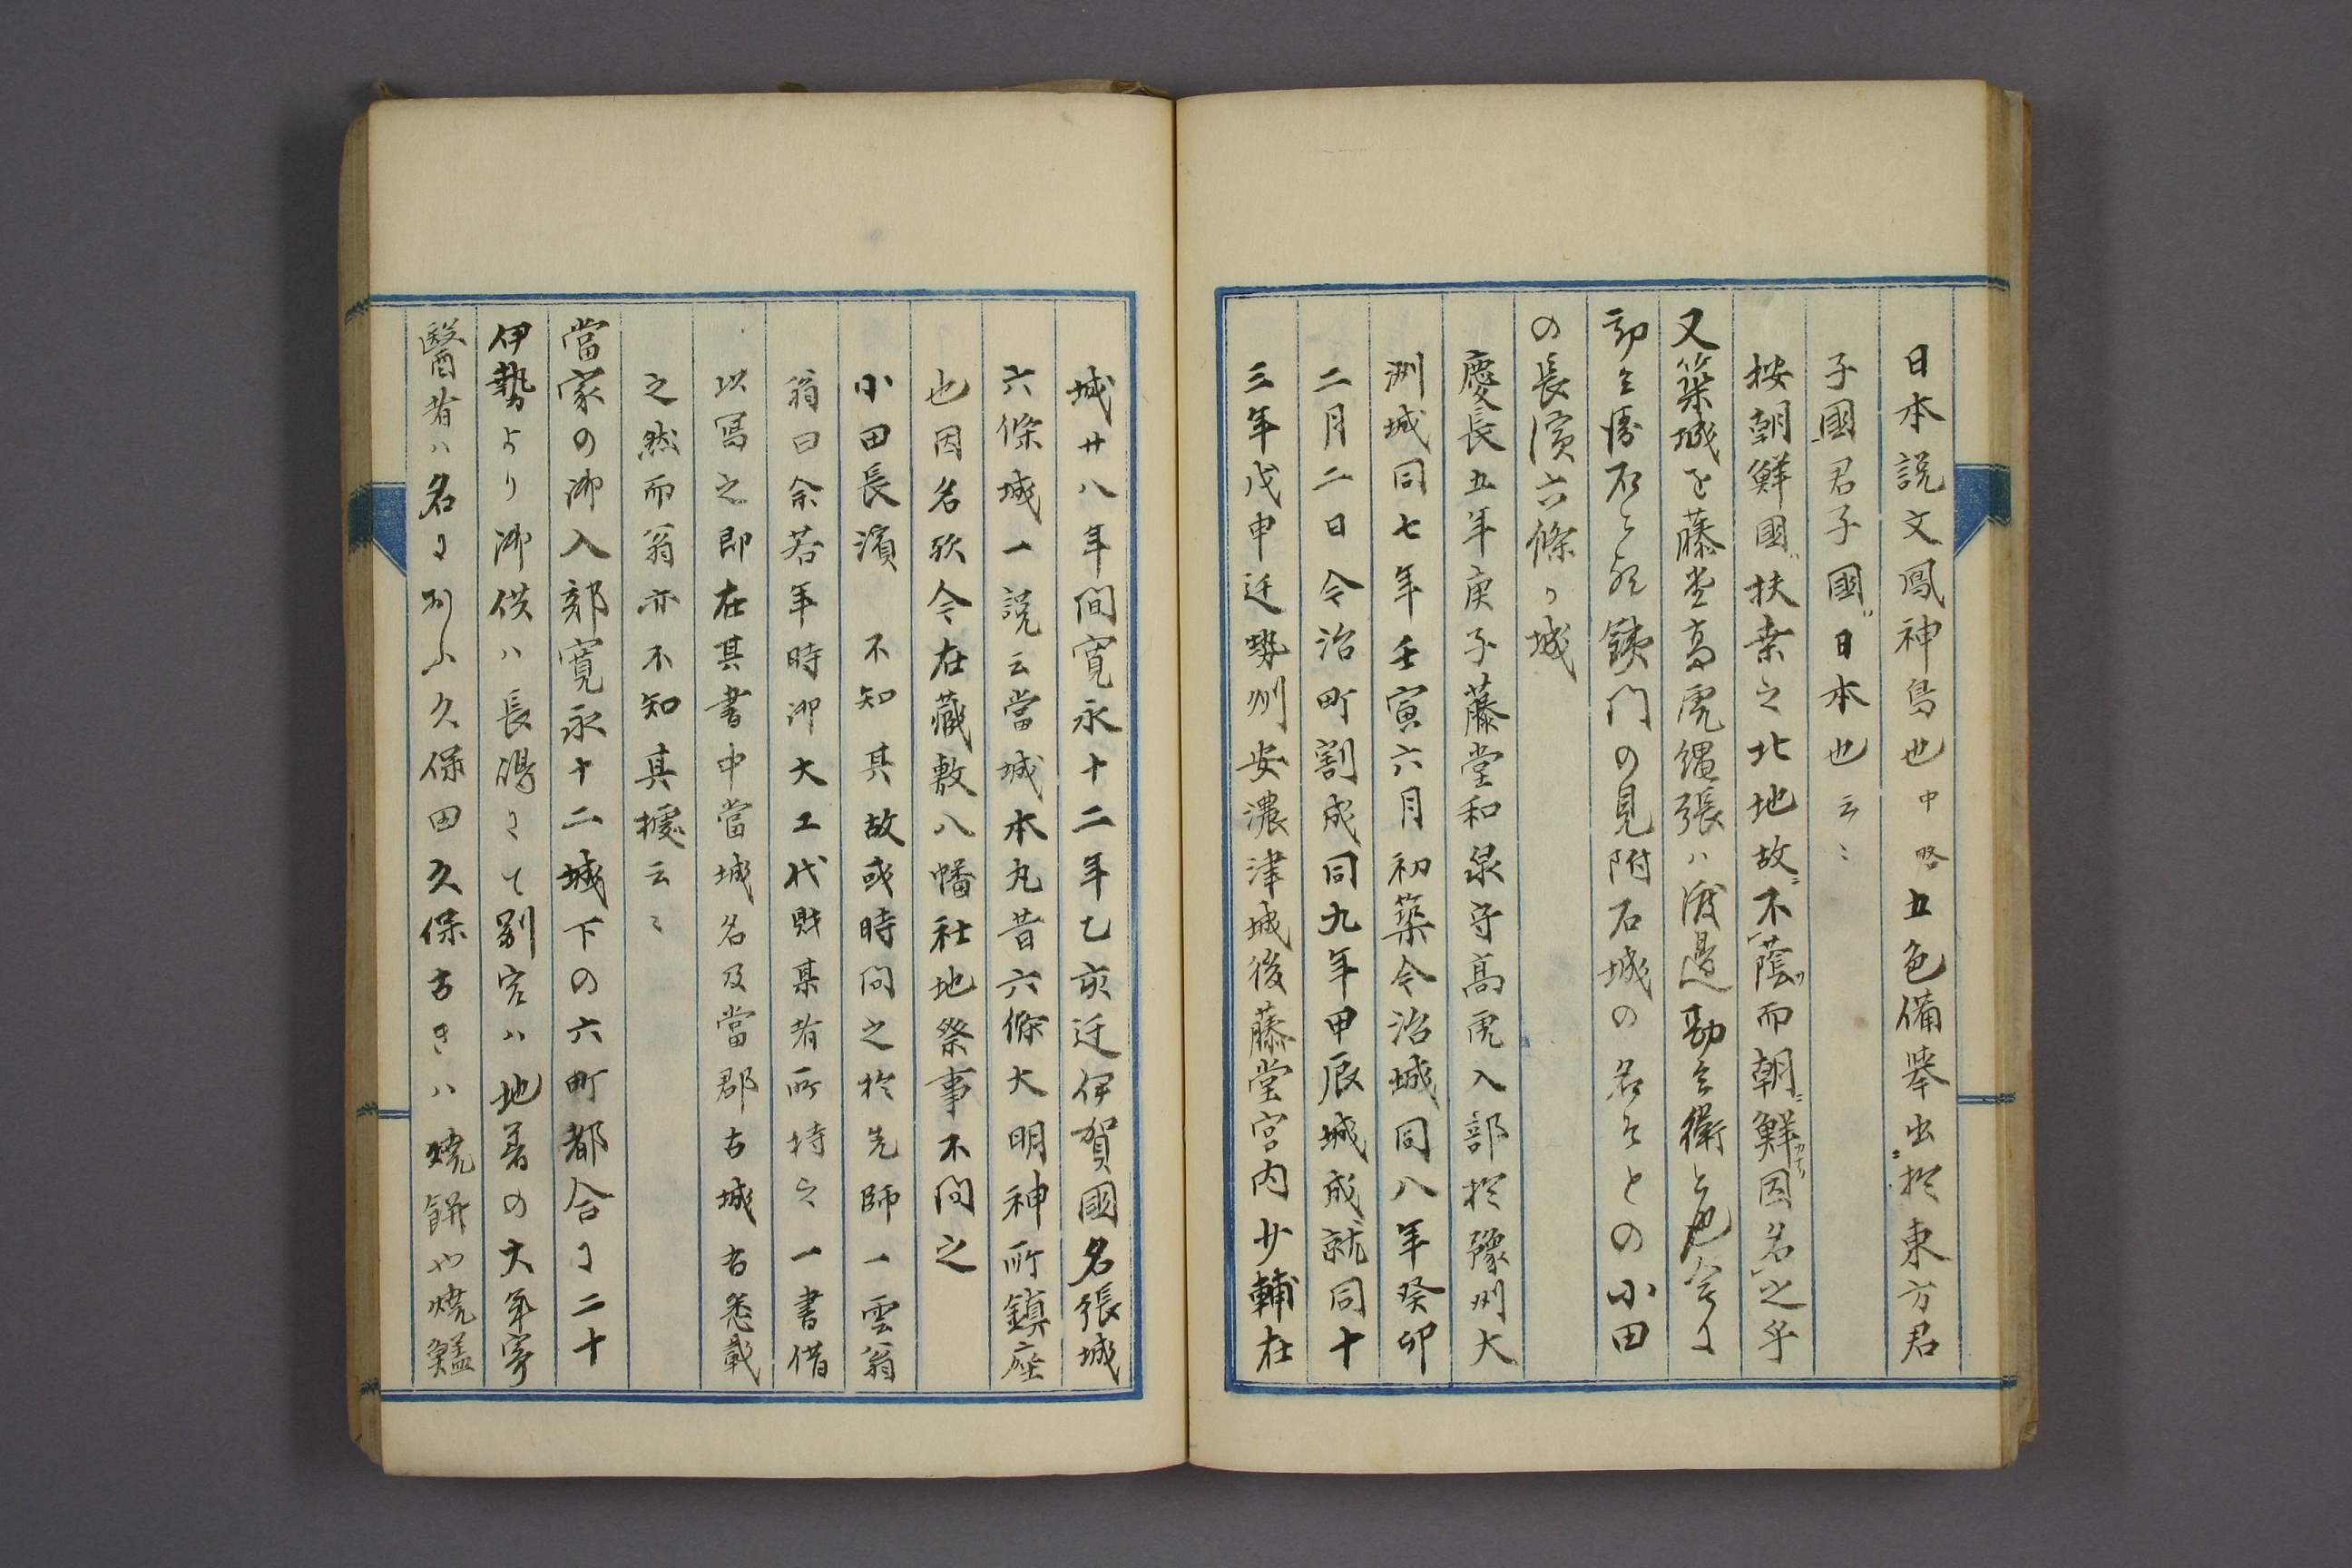 日本説文鳳神鳥也中略五色備挙出於東方君
子國君子國日本也云〻
按朝鮮國扶桒之北地故不蔭而朝鮮因名之乎
又築城を藤堂高虎縄張ハ渡邉勘兵衛と也今に
勘兵衛石と銕門の見附石城の名をとの小田
の長濱六條の城
慶長五年庚子藤堂和泉守髙虎入部於豫州大
洲城同七年壬寅六月初築今治城同八年癸卯
二月二日今治町割成同九年甲辰城成就同十
三年戊申迁勢州安濃津城後藤堂宮内少輔在
城廿八年間寛永十二年乙亥迁伊賀國名張城
六條城一説云當城本丸昔六條大明神所鎮座
也因名欤今在蔵敷八幡社地祭事不同之
小田長濱 不知其故或時問之於先師一雲翁
翁曰余若年時御大工代財某者所持之一書借
以寫之即在其書中當城名及當郡古城者悉載
之然而翁亦不知其據云〻
當家の御入部寛永十二城下の六町都合に二十
伊勢より御供ハ長嶋にて別宮ハ地着の大年寄
醫者ハ名に久保田久保古きハ焼餅や焼鰪